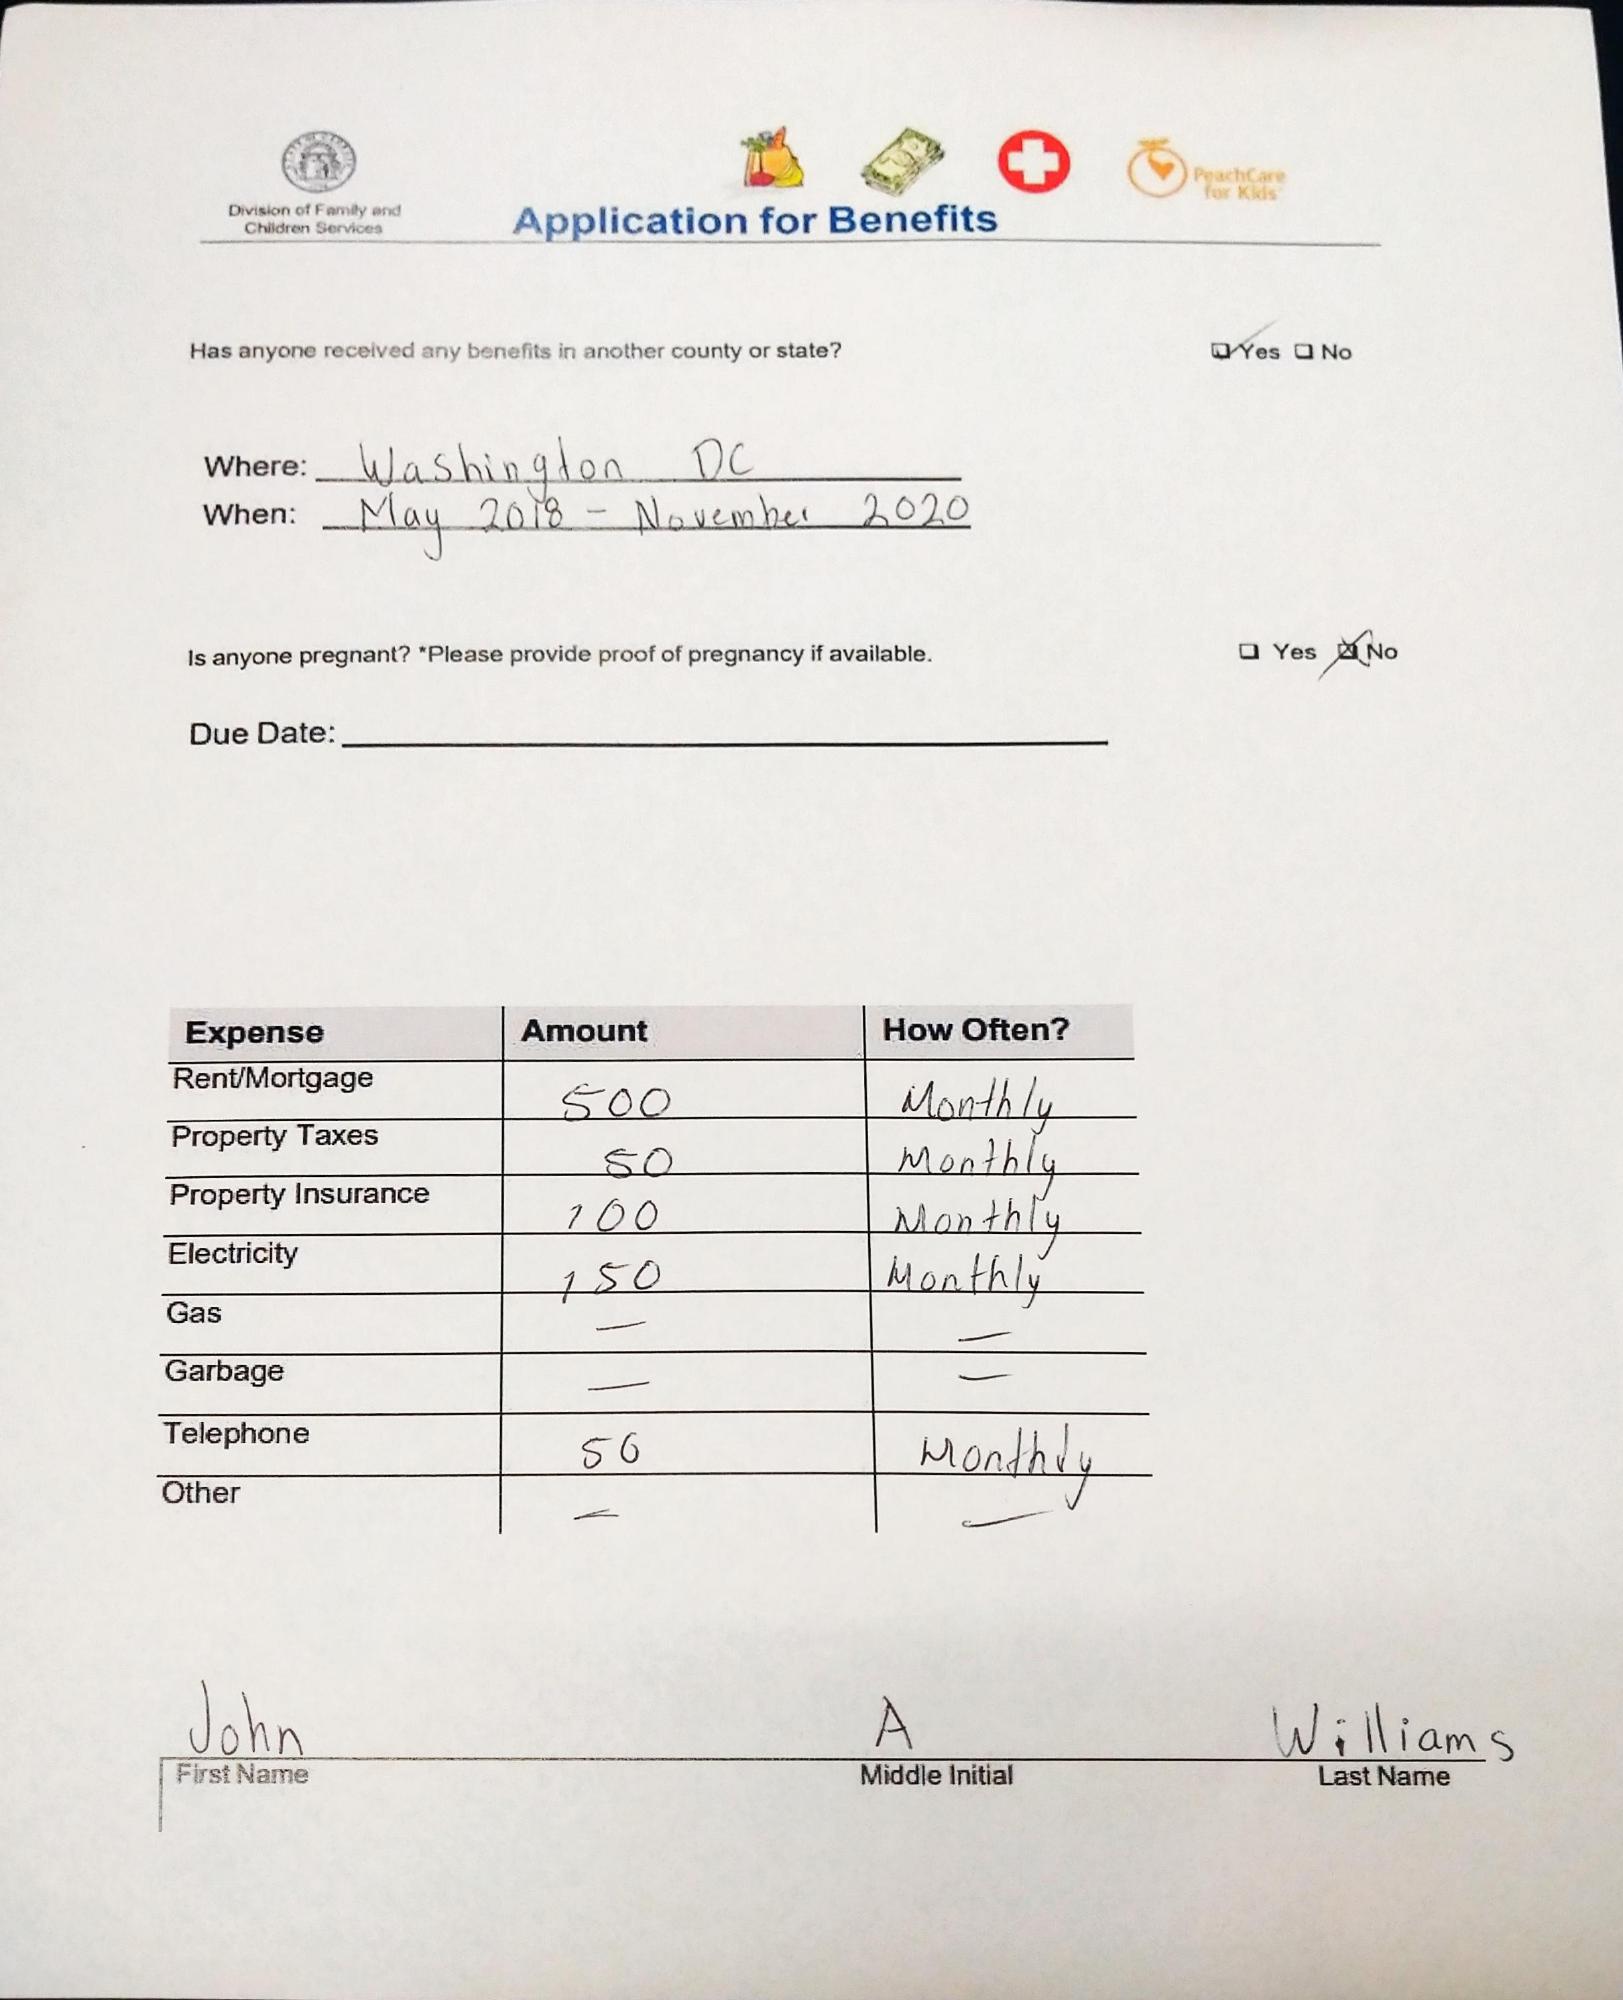 PeachCare
for Kids
Division of Family and
Children Services
Application for Benefits
Has anyone received any benefits in another county or state? Yes No
Where: Washington DC
When: May 2018 - November 2020
Is anyone pregnant? *Please provide proof of pregnancy if available. Yes No
Due Date:
Expense Amount How Often?
Rent/Mortgage 500 Monthly
Property Taxes 50 Monthly
Property Insurance 100 Monthly
Electricity 150 Monthly
Gas — —
Garbage — —
Telephone 50 Monthly
Other — —
John A Williams
First Name Middle Initial Last Name